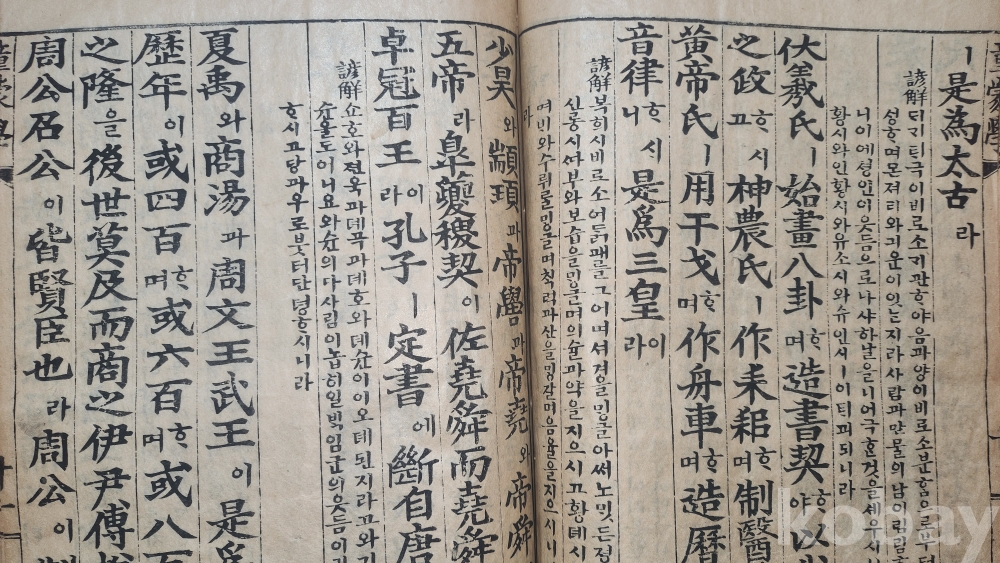 ㅣ是為太古라
諺解
티극이비로소기판ᄒᆞ야음과양이비로소분ᄒᆞᆷ으로부터
셩ᄒᆞ며몬져리와긔운이잇는지라사람과만물의남이림림ᄒᆞ
니이예셩인이웃듬으로나샤하날을니어극ᄒᆞᆫ것을셰우시
황시와인황시와유소시와슈인시ㅣ이티되니라
伏羲氏ㅣ始畫八卦ᄒᆞ며造書契ᄒᆞ야以
之政ᄒᆞ시고神農氏ㅣ作耒耜ᄒᆞ며制醫
黃帝氏ㅣ用干戈ᄒᆞ며作舟車ᄒᆞ며造曆
音律ᄒᆞ시니是爲三皇이라
諺解
복희시비로소어듥괘를그어며셔계를밍글아써노밋든졍
신롱시싸부와보습을밍글며의슐과약을지으시고황톄시
며비와수뤼를밍글며척력과산을밍갈며음율을지으시니
라
少昊와顓頊과帝嚳과帝堯와帝舜
五帝라皐夔稷契이佐堯舜而堯舜
卓冠百王이라孔子ㅣ定書에斷自唐
諺解
쇼호와젼욱과데곡과데호와데슌이이오데된지라고와기
슌을도어니요와슌의다사림이놉히일빅임군의웃듬이
ᄒᆞ시고당과우로붓터단뎡ᄒᆞ시니라
夏禹와商湯과周文王武王이是爲
歷年이或四百ᄒᆞ며或六百ᄒᆞ며或八百
之隆을後世莫及而商之伊尹傅
周公召公이皆賢臣也라周公이制
kobay